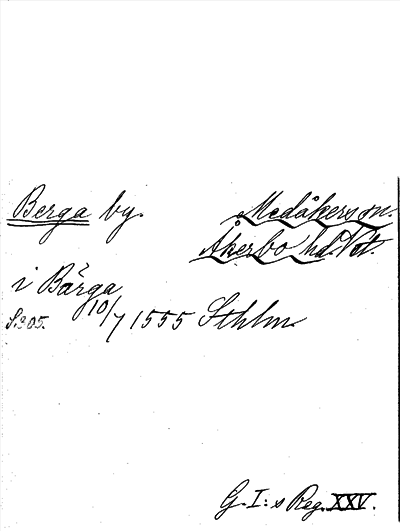 Berga by.
Medåkers sn.
Åkerbo hd. Vst.
i Bärga
S. 205. 10/7 1555 Sthlm.
G. I:s Reg. XXV.